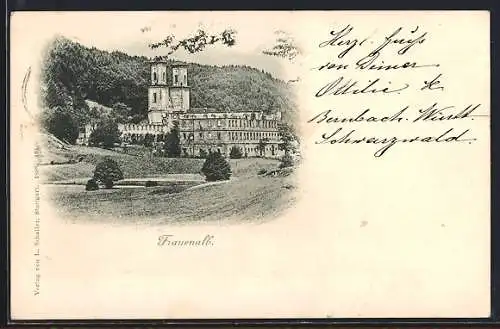 Herzl. Gruß
von Deiner
Ottilie
Bernbach, Württ
Schwarzwald.
Frauenalb.
Verlag von L. Schaller, Stuttgart.